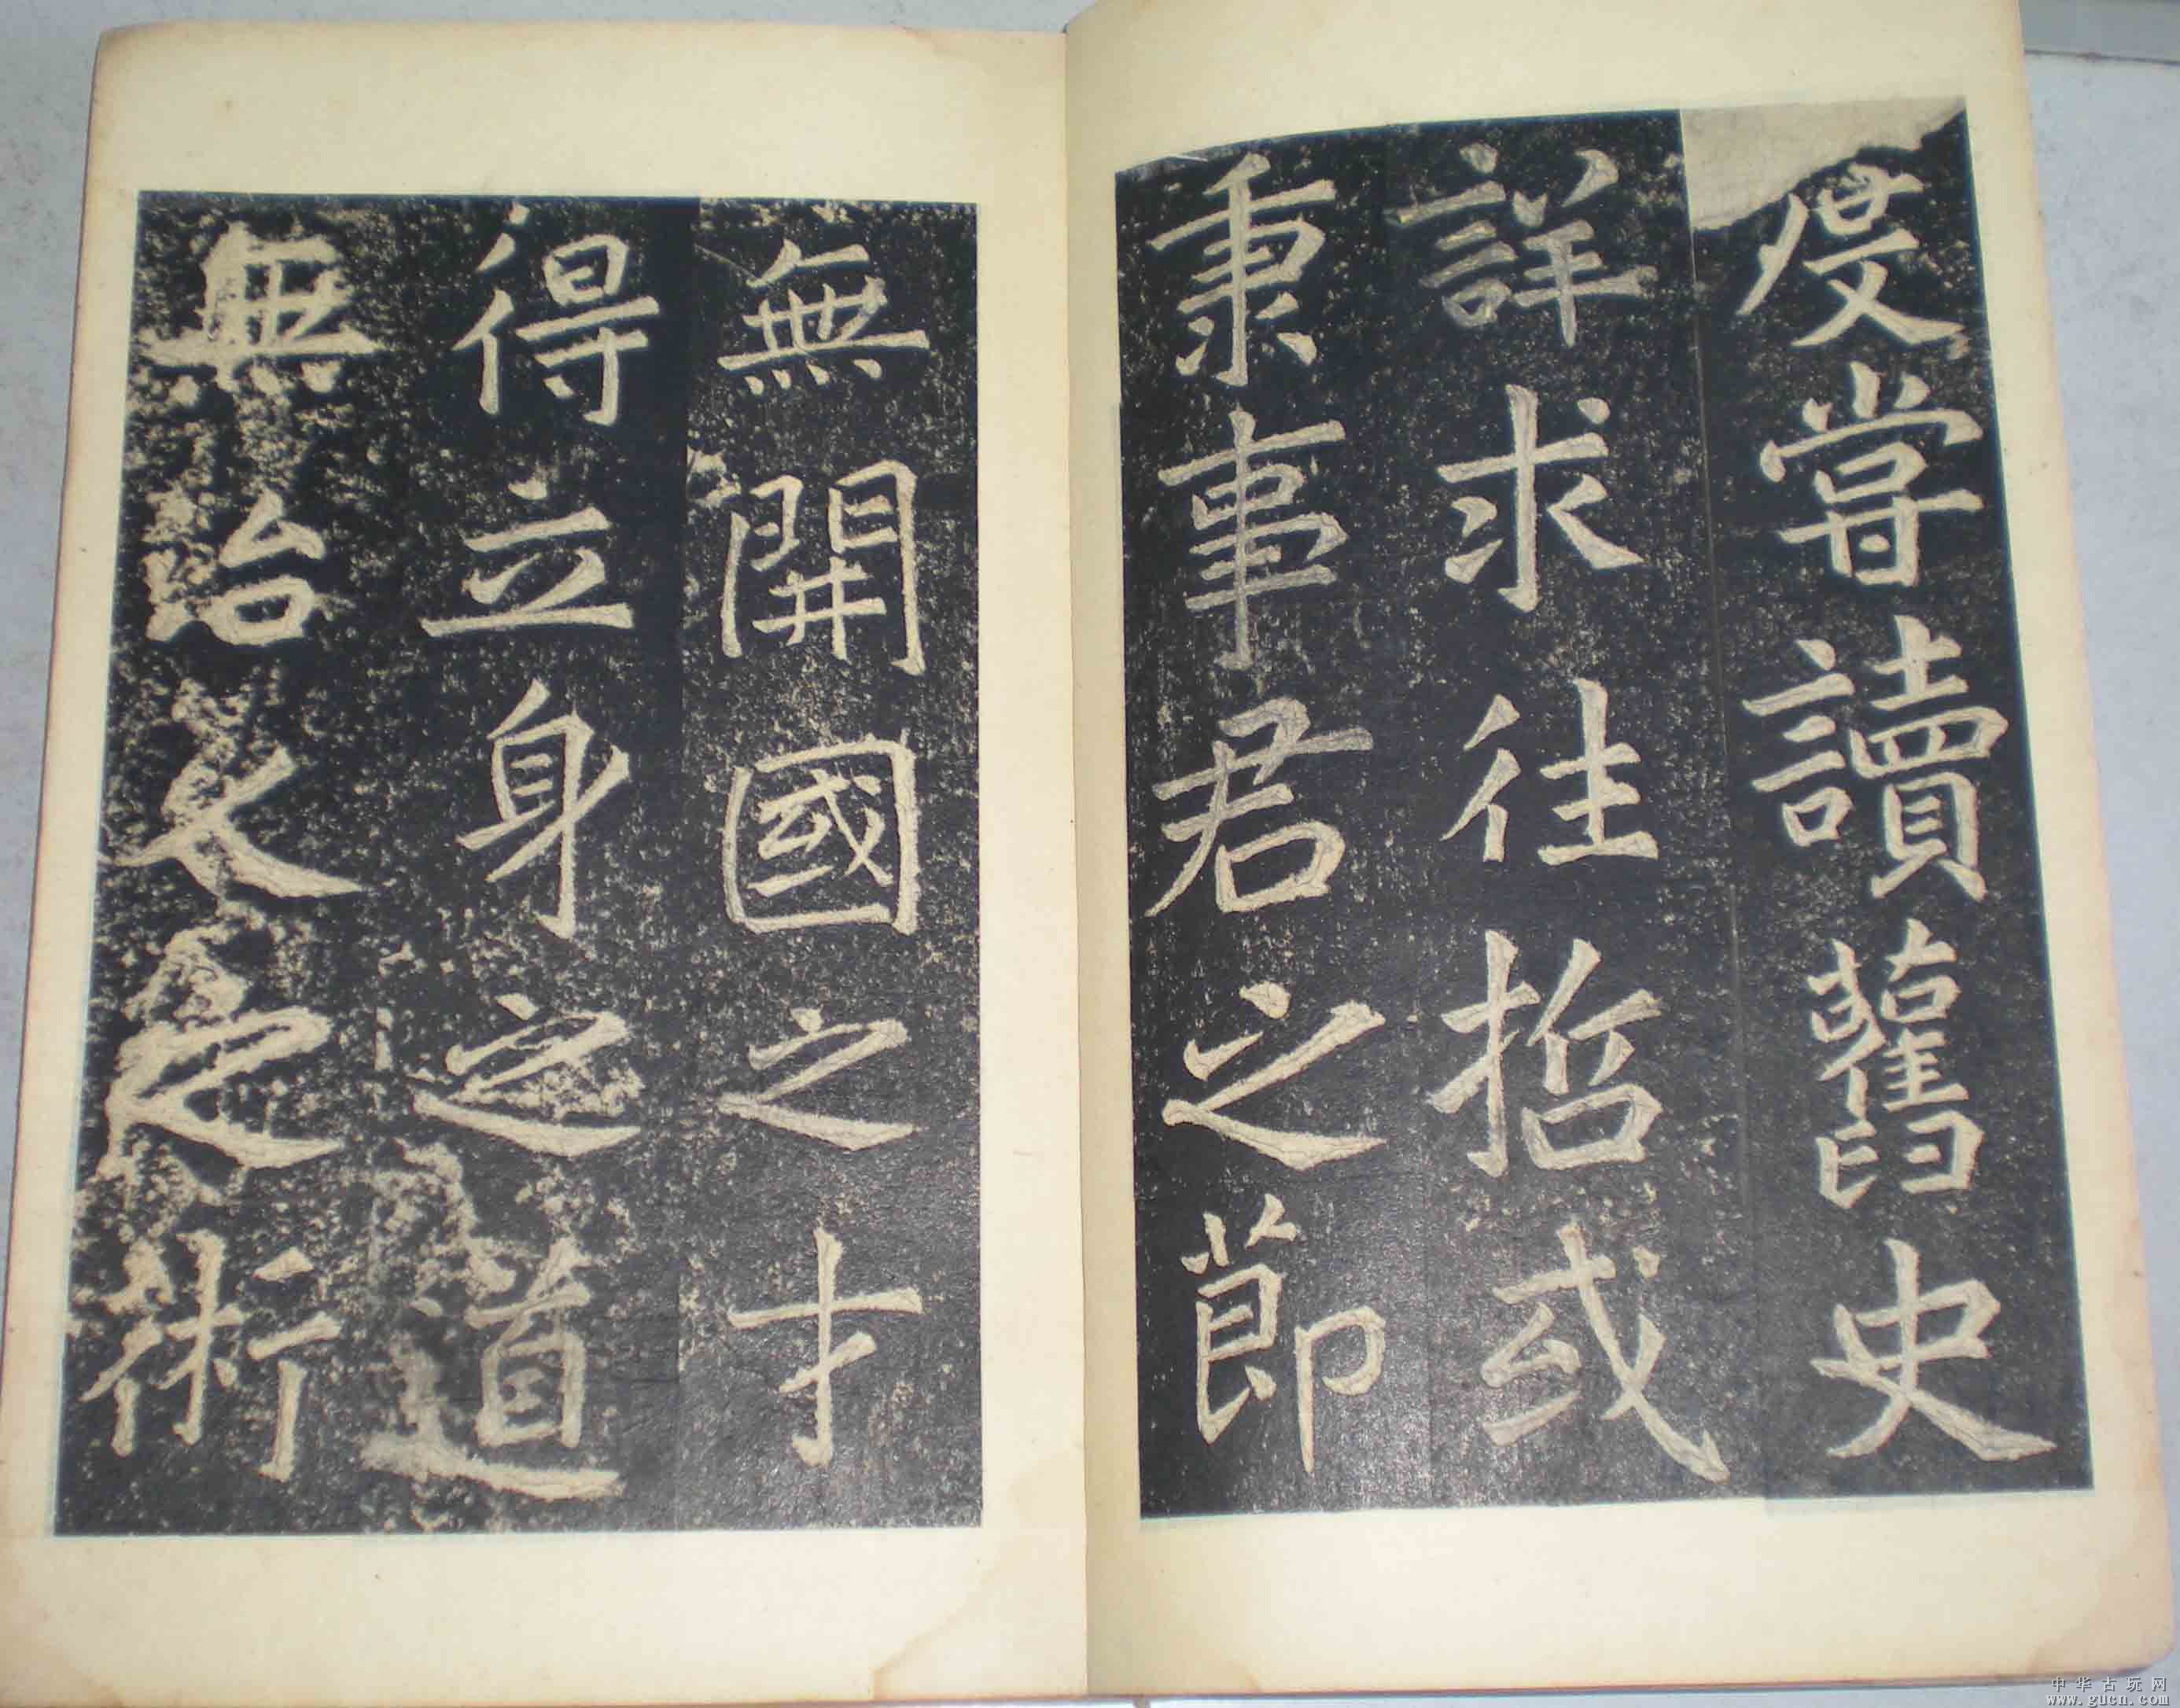 度嘗讀舊史
詳求往哲或
秉事君之節
無開國之才
得立身之道
無治人之術
中华古玩网
www.gucn.com